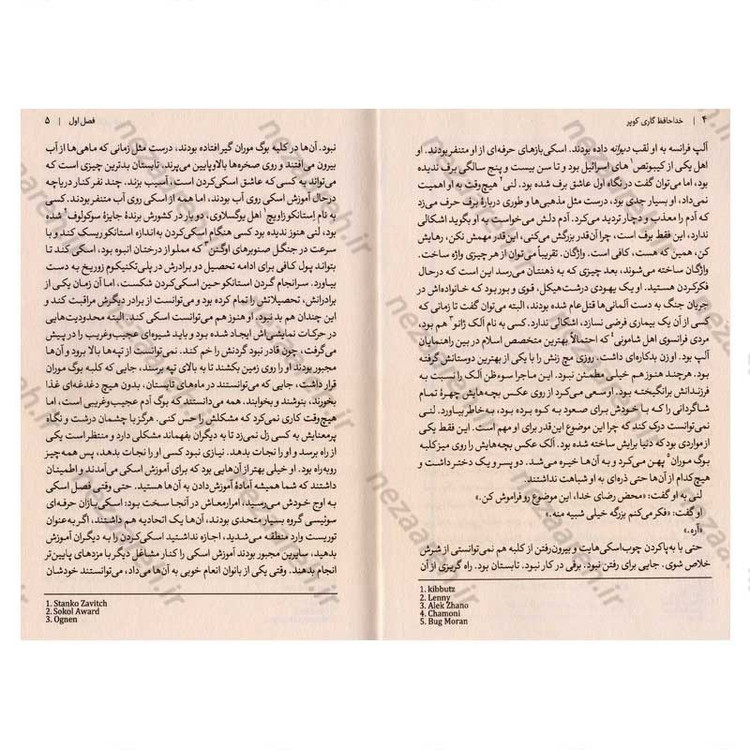 ۴ | خداحافظ گاری کوپر
آلپ فرانسه به او لقب دیوانه داده بودند. اسکی‌بازهای حرفه‌ای از او متنفر بودند. او
اهل یکی از کیبوتص¹ های اسرائیل بود و تا سن بیست و پنج سالگی برف ندیده
بود، اما می‌توان گفت در نگاه اول عاشق برف شده بود. لنی² هیچ‌وقت به او اهمیت
نمی‌داد، او بسیار جدی بود، درست مثل مذهبی‌ها و طوری دربارهٔ برف حرف می‌زد
که آدم را معذب و دچار تردید می‌کرد. آدم دلش می‌خواست به او بگوید اشکالی
ندارد، این فقط برف است، چرا آن‌قدر بزرگش می‌کنی، این‌قدر مهمش نکن، رهایش
کن، همین که هست، کافی است. واژگان. تقریباً می‌توان از هر چیزی واژه ساخت.
واژگان ساخته می‌شوند، بعد چیزی که به ذهنتان می‌رسد این است که درحال
فکرکردن هستید. او یک یهودی درشت‌هیکل، قوی و بور بود که خانواده‌اش در
جریان جنگ به دست آلمانی‌ها قتل‌عام شده بودند، البته می‌توان گفت تا زمانی که
کسی از آن یک بیماری فرضی نسازد، اشکالی ندارد. کسی به نام الک ژانو³ هم بود،
مردی فرانسوی اهل شامونی⁴ که احتمالاً بهترین متخصص اسلام در بین راهنمایان
آلپ بود. او زن بدکاره‌ای داشت. روزی مچ زنش را با یکی از بهترین دوستانش گرفته
بود. هرچند هنوز هم خیلی مطمئن نبود. این ماجرا سوءظن الک را نسبت به
فرزندانش برانگیخته بود. او سعی می‌کرد از روی عکس بچه‌هایش چهرهٔ تمام
شاگردانی را که با خودش برای صعود به کوه برده بود، به خاطر بیاورد. لنی
نمی‌توانست درک کند که چرا این موضوع این‌قدر برای او مهم است. این فقط یکی
از مواردی بود که دنیا برایش ساخته شده بود. الک عکس بچه‌هایش را روی میز کلبه
بوگ موران⁵ پهن می‌کرد و به آن‌ها خیره می‌شد. دو پسر و یک دختر داشت و
هیچ‌کدام از آن‌ها حتی ذره‌ای به او شباهت نداشتند.
لنی به او گفت: «محض رضای خدا، این موضوع رو فراموش کن.»
او گفت: «فکر می‌کنم بزرگه خیلی شبیه منه.»
«آره.»
حتی با به پا کردن چوب‌اسکی‌هایت و بیرون رفتن از کلبه هم نمی‌توانستی از شرش
خلاص شوی. جایی برای رفتن نبود. برفی در کار نبود. تابستان بود. راه گریزی از آن
1. kibbutz
2. Lenny
3. Alek Zhano
4. Chamoni
5. Bug Moran
فصل اول | ۵
نبود. آن‌ها در کلبه بوگ موران گیر افتاده بودند، درست مثل زمانی که ماهی‌ها از آب
بیرون می‌افتند و روی صخره‌ها بالا و پایین می‌پرند. تابستان بدترین چیزی است که
می‌تواند به کسی که عاشق اسکی‌کردن است، آسیب بزند. چند نفر کنار دریاچه
درحال آموزش اسکی روی آب بودند، اما همه از اسکی روی آب متنفر بودند. کسی
به نام استانکو زاویچ¹ اهل یوگسلاوی، دو بار در کشورش برندهٔ جایزهٔ سوکولوف² شده
بود، لنی هنوز ندیده بود کسی هنگام اسکی‌کردن به‌اندازه استانکو ریسک کند و با
سرعت در جنگل صنوبرهای اوگنن³ که مملو از درختان انبوه بود، اسکی کند تا
بتواند پول کافی برای ادامه تحصیل دو برادرش در پلی‌تکنیکوم زوریخ به دست
بیاورد. سرانجام گردن استانکو حین اسکی‌کردن شکست، اما آن زمان یکی از
برادرانش، تحصیلاتش را تمام کرده بود و می‌توانست از برادر دیگرش مراقبت کند و
این چندان هم بد نبود. او هنوز هم می‌توانست اسکی کند. البته محدودیت‌هایی
در حرکات نمایشی‌اش ایجاد شده بود و باید شیوه‌ای عجیب‌وغریب را در پیش
می‌گرفت، چون قادر نبود گردنش را خم کند. نمی‌توانست از تپه‌ها بالا برود و آن‌ها
مجبور بودند او را روی زمین بکشند تا به بالای تپه برسند، جایی که کلبه بوگ موران
قرار داشت، جایی که می‌توانستند در ماه‌های تابستان، بدون هیچ دغدغه‌ای غذا
بخورند، بنوشند و بخوابند. همه می‌دانستند که بوگ آدم عجیب‌وغریبی است، اما
هیچ‌وقت کاری نمی‌کرد که مشکلش را حس کنی. هرگز با چشمان درشت و نگاه
پرمعنایش به کسی زل نمی‌زد تا به دیگران بفهماند مشکلی دارد و منتظر است یکی
از راه برسد و او را نجات بدهد. نیازی نبود کسی او را نجات بدهد، پس همه‌چیز
روبه‌راه بود. او خیلی بهتر از آن‌هایی بود که برای آموزش اسکی می‌آمدند و اطمینان
داشتند که شما همیشه آمادهٔ آموزش‌دادن به آن‌ها هستید. حتی وقتی فصل اسکی
به اوج خودش می‌رسید، امرارمعاش در آنجا سخت بود: اسکی‌بازان حرفه‌ای
سوئیسی گروه بسیار متحدی بودند، آن‌ها یک اتحادیه هم داشتند، اگر به‌عنوان
توریست وارد منطقه می‌شدید، اجازه نداشتید اسکی‌کردن را به دیگران آموزش
بدهید، سایرین مجبور بودند آموزش اسکی را کنار مشاغل دیگر با مزدهای پایین‌تر
انجام بدهند. وقتی یکی از بانوان انعام خوبی به آن‌ها می‌داد، می‌توانستند خودشان
1. Stanko Zavitch
2. Sokol Award
3. Ognen
nezaareh.ir